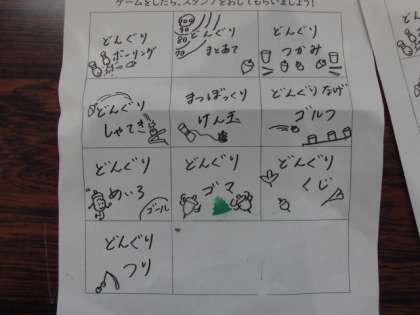 ゲームをしたら、スタンプをおしてもらいましょう!
どんぐり
ボーリング
100
90
80
70
どんぐり
まとあて
どんぐり
つかみ
どんぐり
しゃてき
まつぼっくり
けん玉
どんぐりなげ
ゴルフ
どんぐり
めいろ
ゴール
どんぐり
ゴマ
どんぐり
くじ
どんぐり
つり